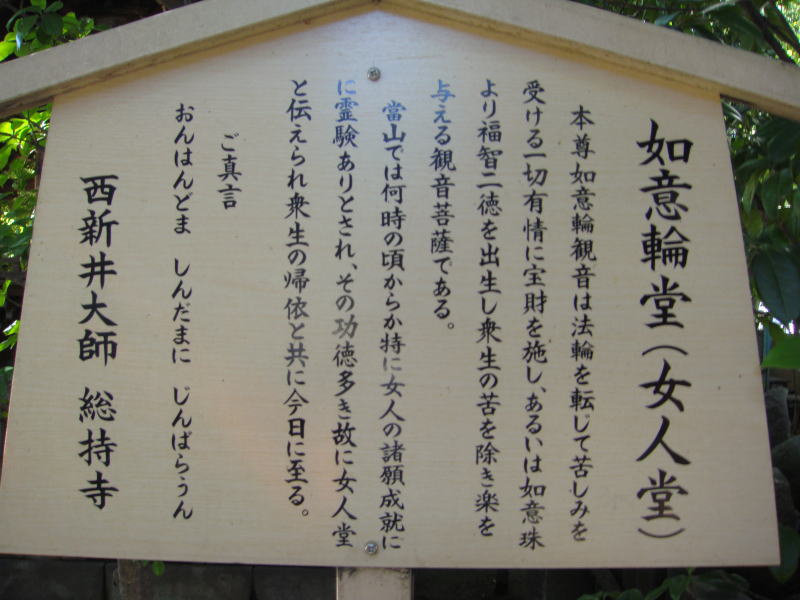 如意輪堂(女人堂)
本尊如意輪観音は法輪を転じて苦しみを
受ける一切有情に宝財を施し、あるいは如意珠
より福智二徳を出生し衆生の苦を除き楽を
与える観音菩薩である。
當山では何時の頃からか特に女人の諸願成就に
に霊験ありとされ、その功徳多き故に女人堂
と伝えられ衆生の帰依と共に今日に至る。
ご真言
おんはんどま しんだまに じんばらうん
西新井大師 総持寺